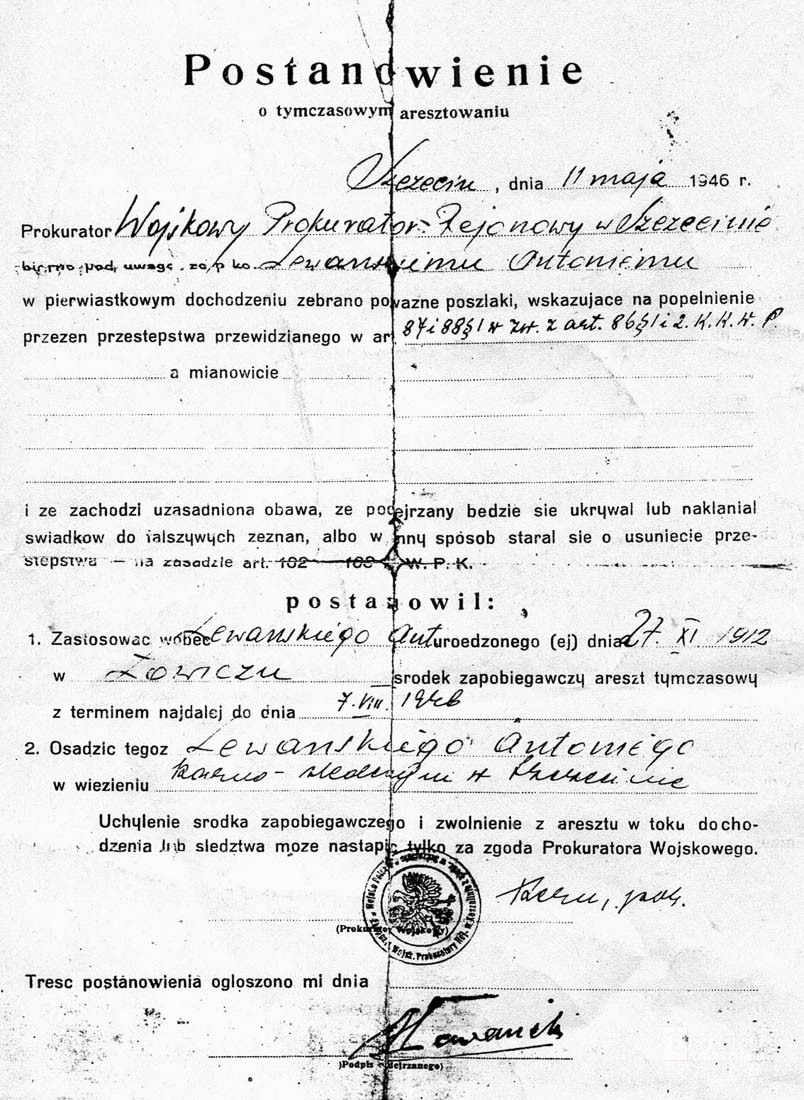 Postanowienie
o tymczasowym aresztowaniu
Szczecin, dnia 11 maja 1946 r.
Prokurator Wojskowy Prokurator Rejonowy w Szczecinie
biorac pod uwage, ze p-ko Lewanskiemu Antoniemu
w pierwiastkowym dochodzeniu zebrano powazne poszlaki, wskazujace na popelnienie
przezen przestepstwa przewidzianego w art. 87 i 88 § 1 w zw. z art. 86 § 1 i 2. K. K. W. P.
a mianowicie
i ze zachodzi uzasadniona obawa, ze podejrzany bedzie sie ukrywal lub naklanial
swiadkow do falszywych zeznan, albo w inny sposob staral sie o usuniecie prze-
stepstwa — na zasadzie art. 102 — W. P. K.
postanowil:
1. Zastosowac wobec Lewanskiego Ant uroedzonego (ej) dnia 27. XI 1912
w Łowiczu srodek zapobiegawczy areszt tymczasowy
z terminem najdalej do dnia 7. VIII. 1946
2. Osadzic tegoz Lewanskiego Antoniego
w wiezieniu karno-sledczym w Szczecinie
Uchylenie srodka zapobiegawczego i zwolnienie z aresztu w toku docho-
dzenia lub sledztwa moze nastapic tylko za zgoda Prokuratora Wojskowego.
(Prokurator Wojskowy)
Tresc postanowienia ogloszono mi dnia
(Podpis podejrzanego)